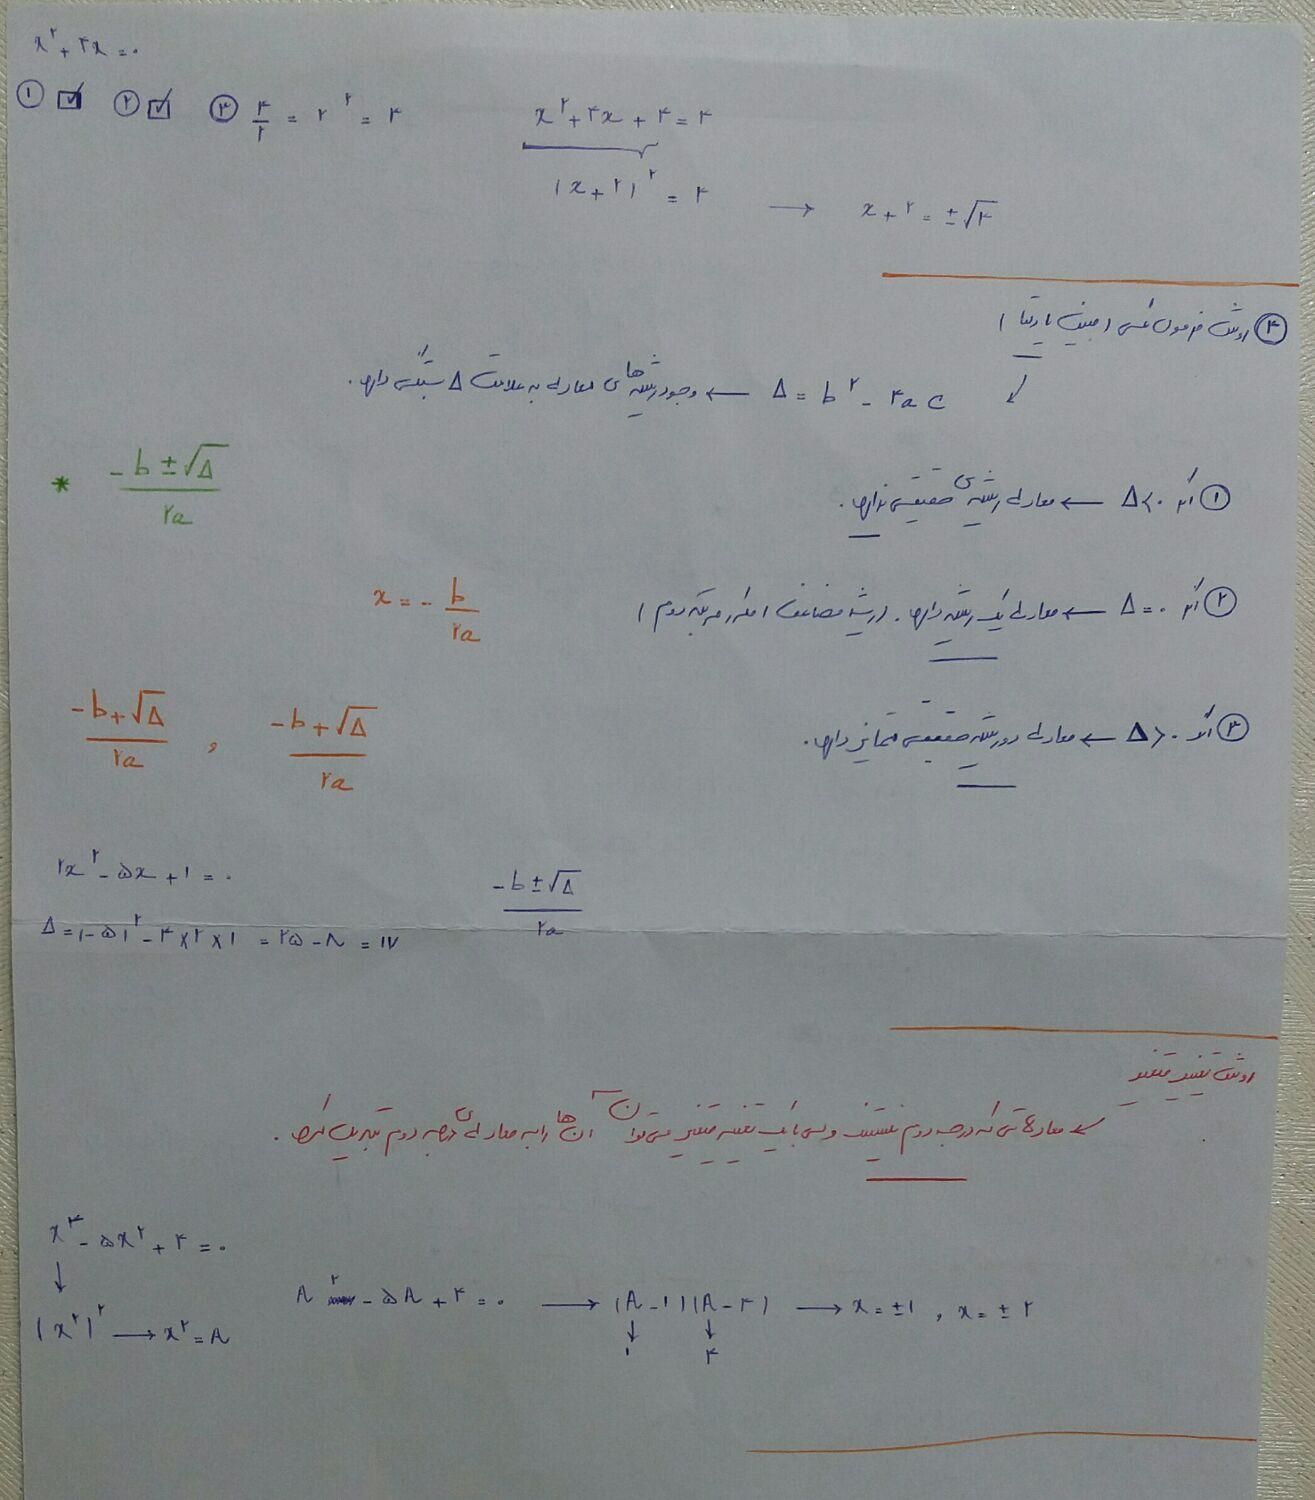 x² + ۴x = ۰
① ☑ ② ☑ ③ ۴/۲ = ۲² = ۴
x² + ۴x + ۴ = ۴
(x + ۲)² = ۴ → x + ۲ = ±√۴
④ روش فرمول کلی (مبین یا دلتا)
Δ = b² - ۴ac ← وجود ریشه های معادله به علامت Δ بستگی دارد.
* -b ± √Δ / ۲a
① اگر Δ < ۰ ← معادله ریشه ی حقیقی ندارد.
② اگر Δ = ۰ ← معادله یک ریشه دارد. (ریشه مضاعف مرتبه دوم)
x = - b / ۲a
③ اگر Δ > ۰ ← معادله دو ریشه حقیقی متمایز دارد.
-b + √Δ / ۲a , -b + √Δ / ۲a
۲x² - ۵x + ۱ = ۰
-b ± √Δ / ۲a
Δ = (-۵)² - ۴ × ۲ × ۱ = ۲۵ - ۸ = ۱۷
روش تغییر متغیر
معادلاتی که درجه دوم نیستند ولی با یک تغییر متغیر می توان آن ها را به معادله ی درجه دوم تبدیل کرد.
x⁴ - ۵x² + ۴ = ۰
(x²)² → x² = A
A² - ۵A + ۴ = ۰ → (A - ۱)(A - ۴) → x = ±۱ , x = ±۲
۱ ۴